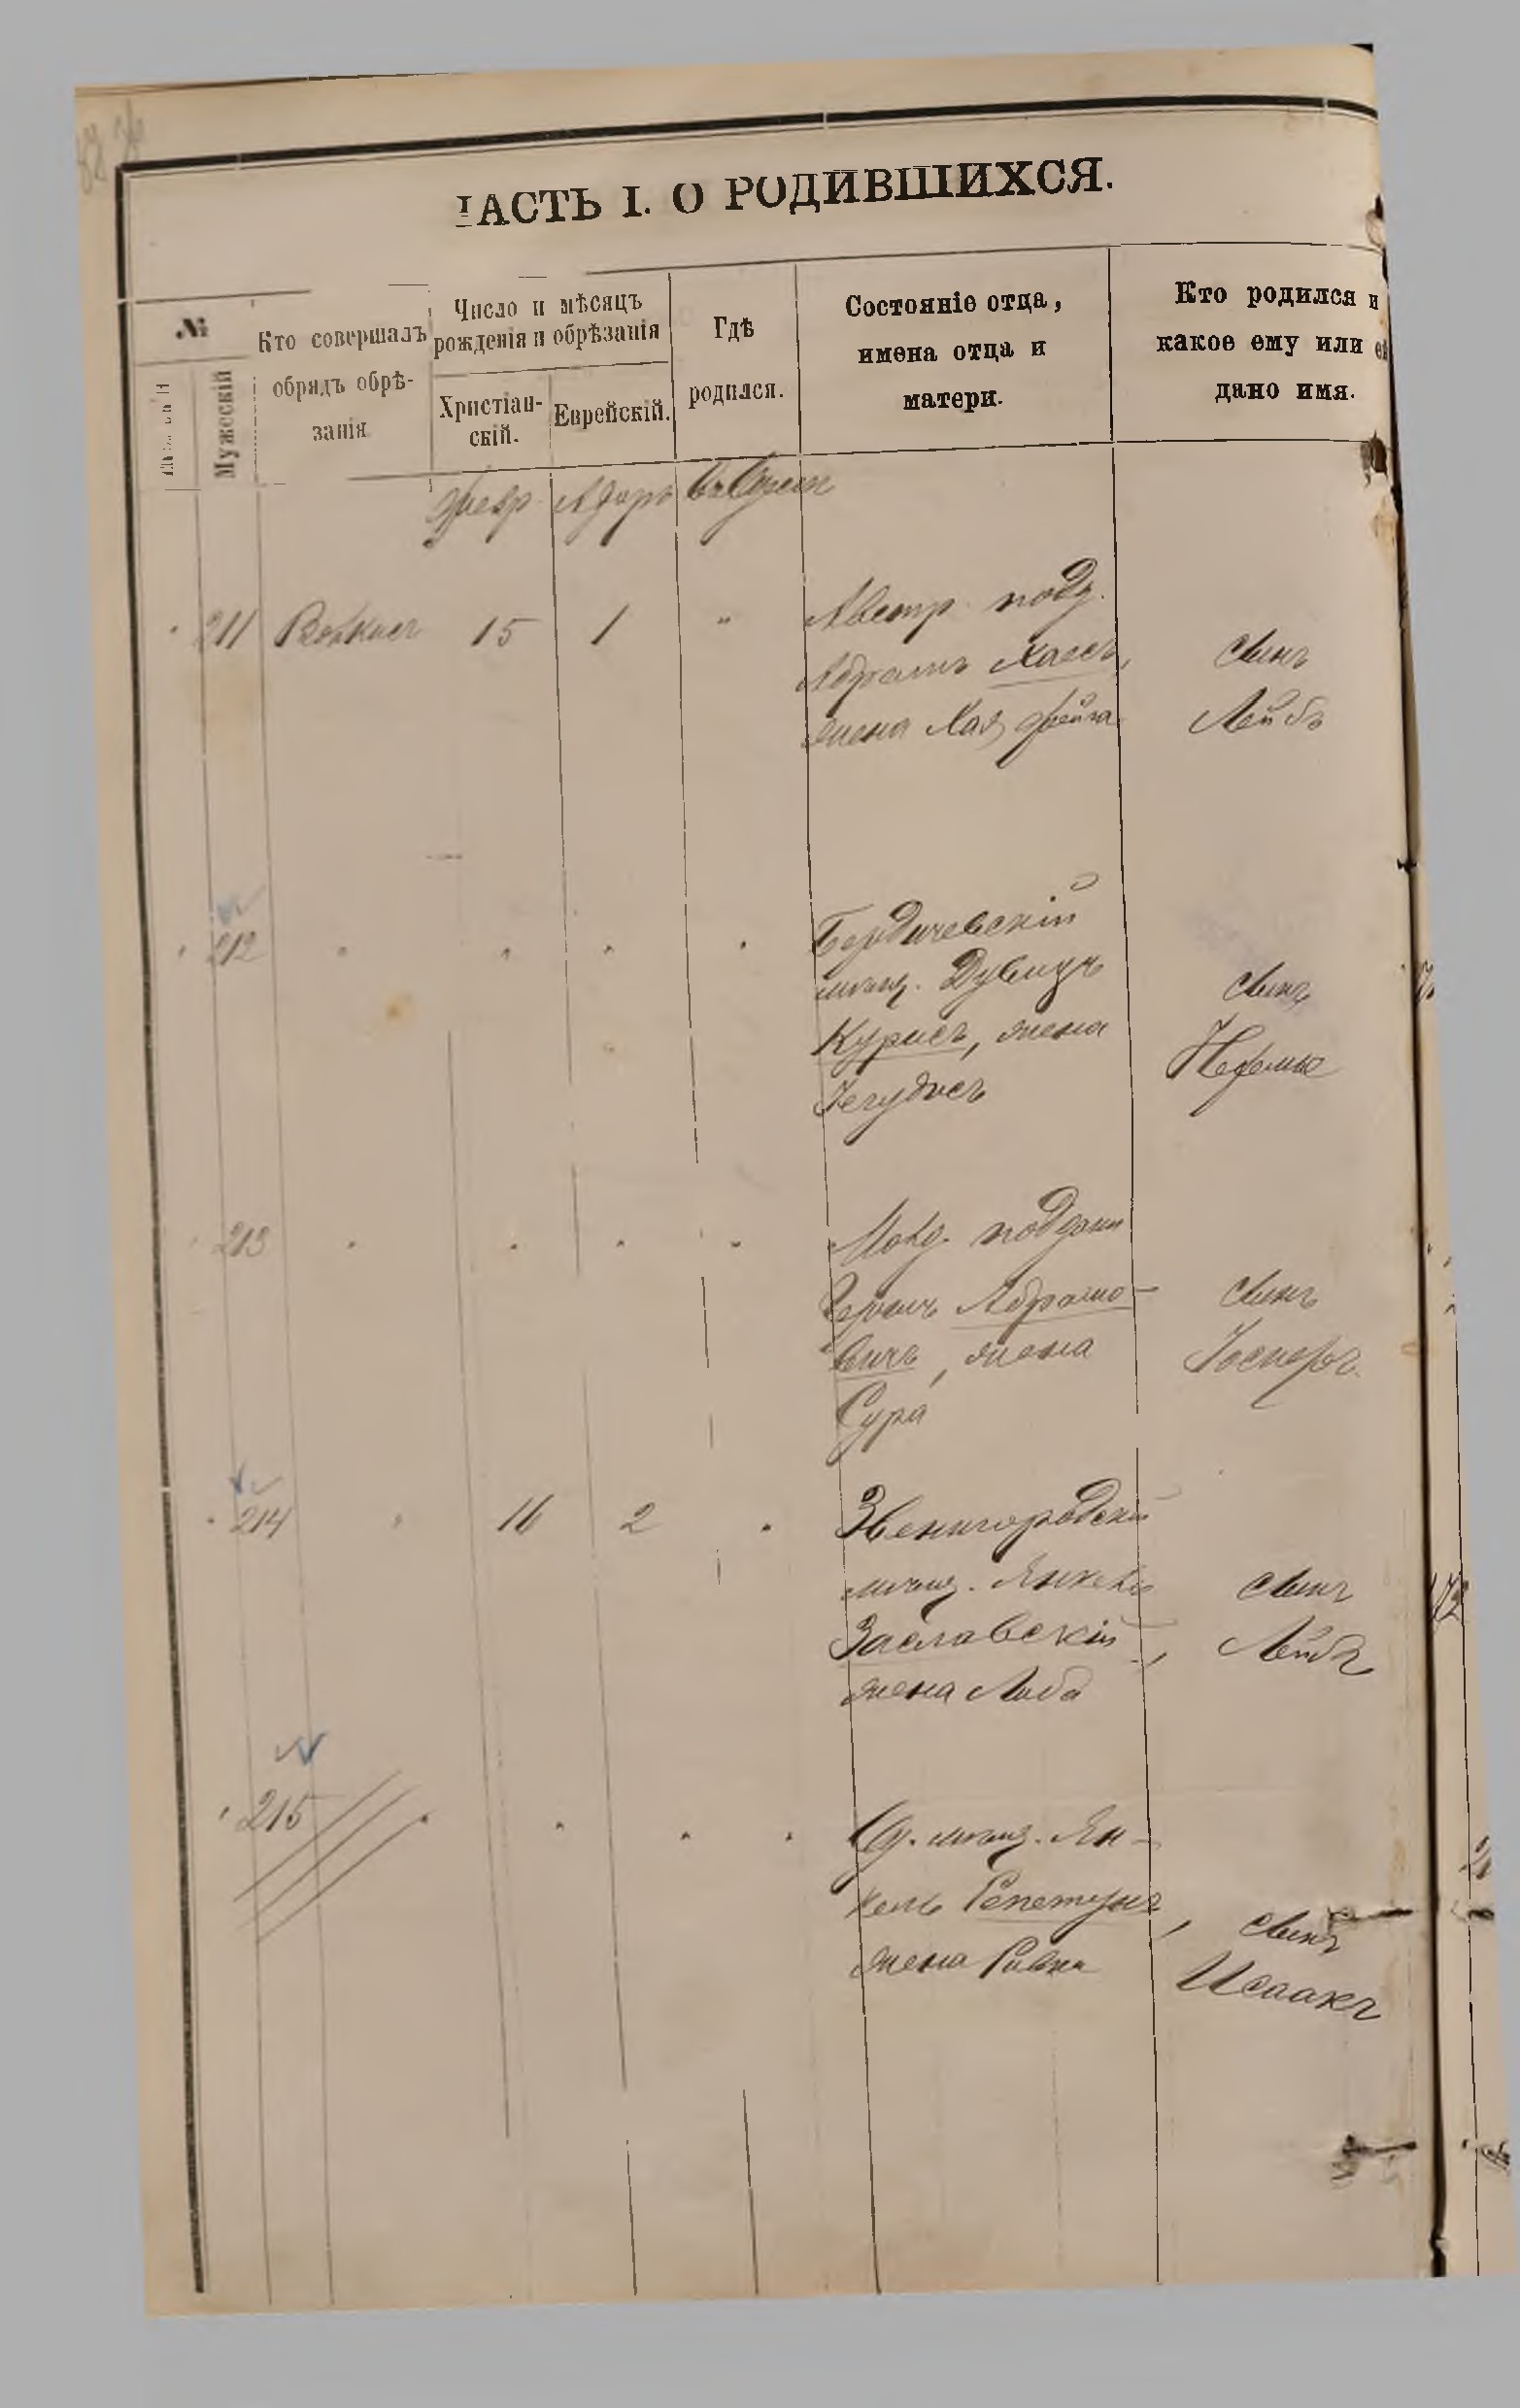 ЧАСТЬ I. О РОДИВШИХСЯ.
№
Мужескій
Кто совершалъ
обрядъ обрѣ-
занія
Число и мѣсяцъ
рожденія и обрѣзанія
Христіан-
скій.
Еврейскій.
Гдѣ
родился.
Состояніе отца,
имена отца и
матери.
Кто родился и
какое ему или ей
дано имя.
Февр Адаръ
211 15 1 "
Австр. подд.
Абрамъ Хаесъ,
жена Хая Фейга
сынъ
Лейбъ
212
Бердичевскій
мѣщ. Дувидъ
Курисъ, жена
Іегудисъ
сынъ
213
Молд. поддан
Абрамо-
вичъ, жена
Сура
сынъ
Іосифъ
214 16 2
Звенигородскій
мѣщ. Янкель
Заславскій,
жена Люба
сынъ
Лейбъ
215
Од. мѣщ. Ян-
кель Репетунъ,
жена Ривка
сынъ
Исаакъ